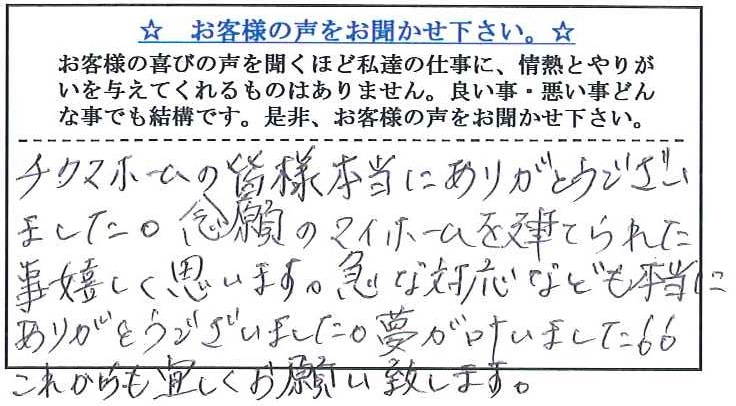 ☆ お客様の声をお聞かせ下さい。☆
お客様の喜びの声を聞くほど私達の仕事に、情熱とやりが
いを与えてくれるものはありません。良い事・悪い事どん
な事でも結構です。是非、お客様の声をお聞かせ下さい。
チクマホームの皆様本当にありがとうござい
ました。念願のマイホームを建てられた
事嬉しく思います。急な対応なども本当に
ありがとうございました。夢が叶いました
これからも宜しくお願い致します。